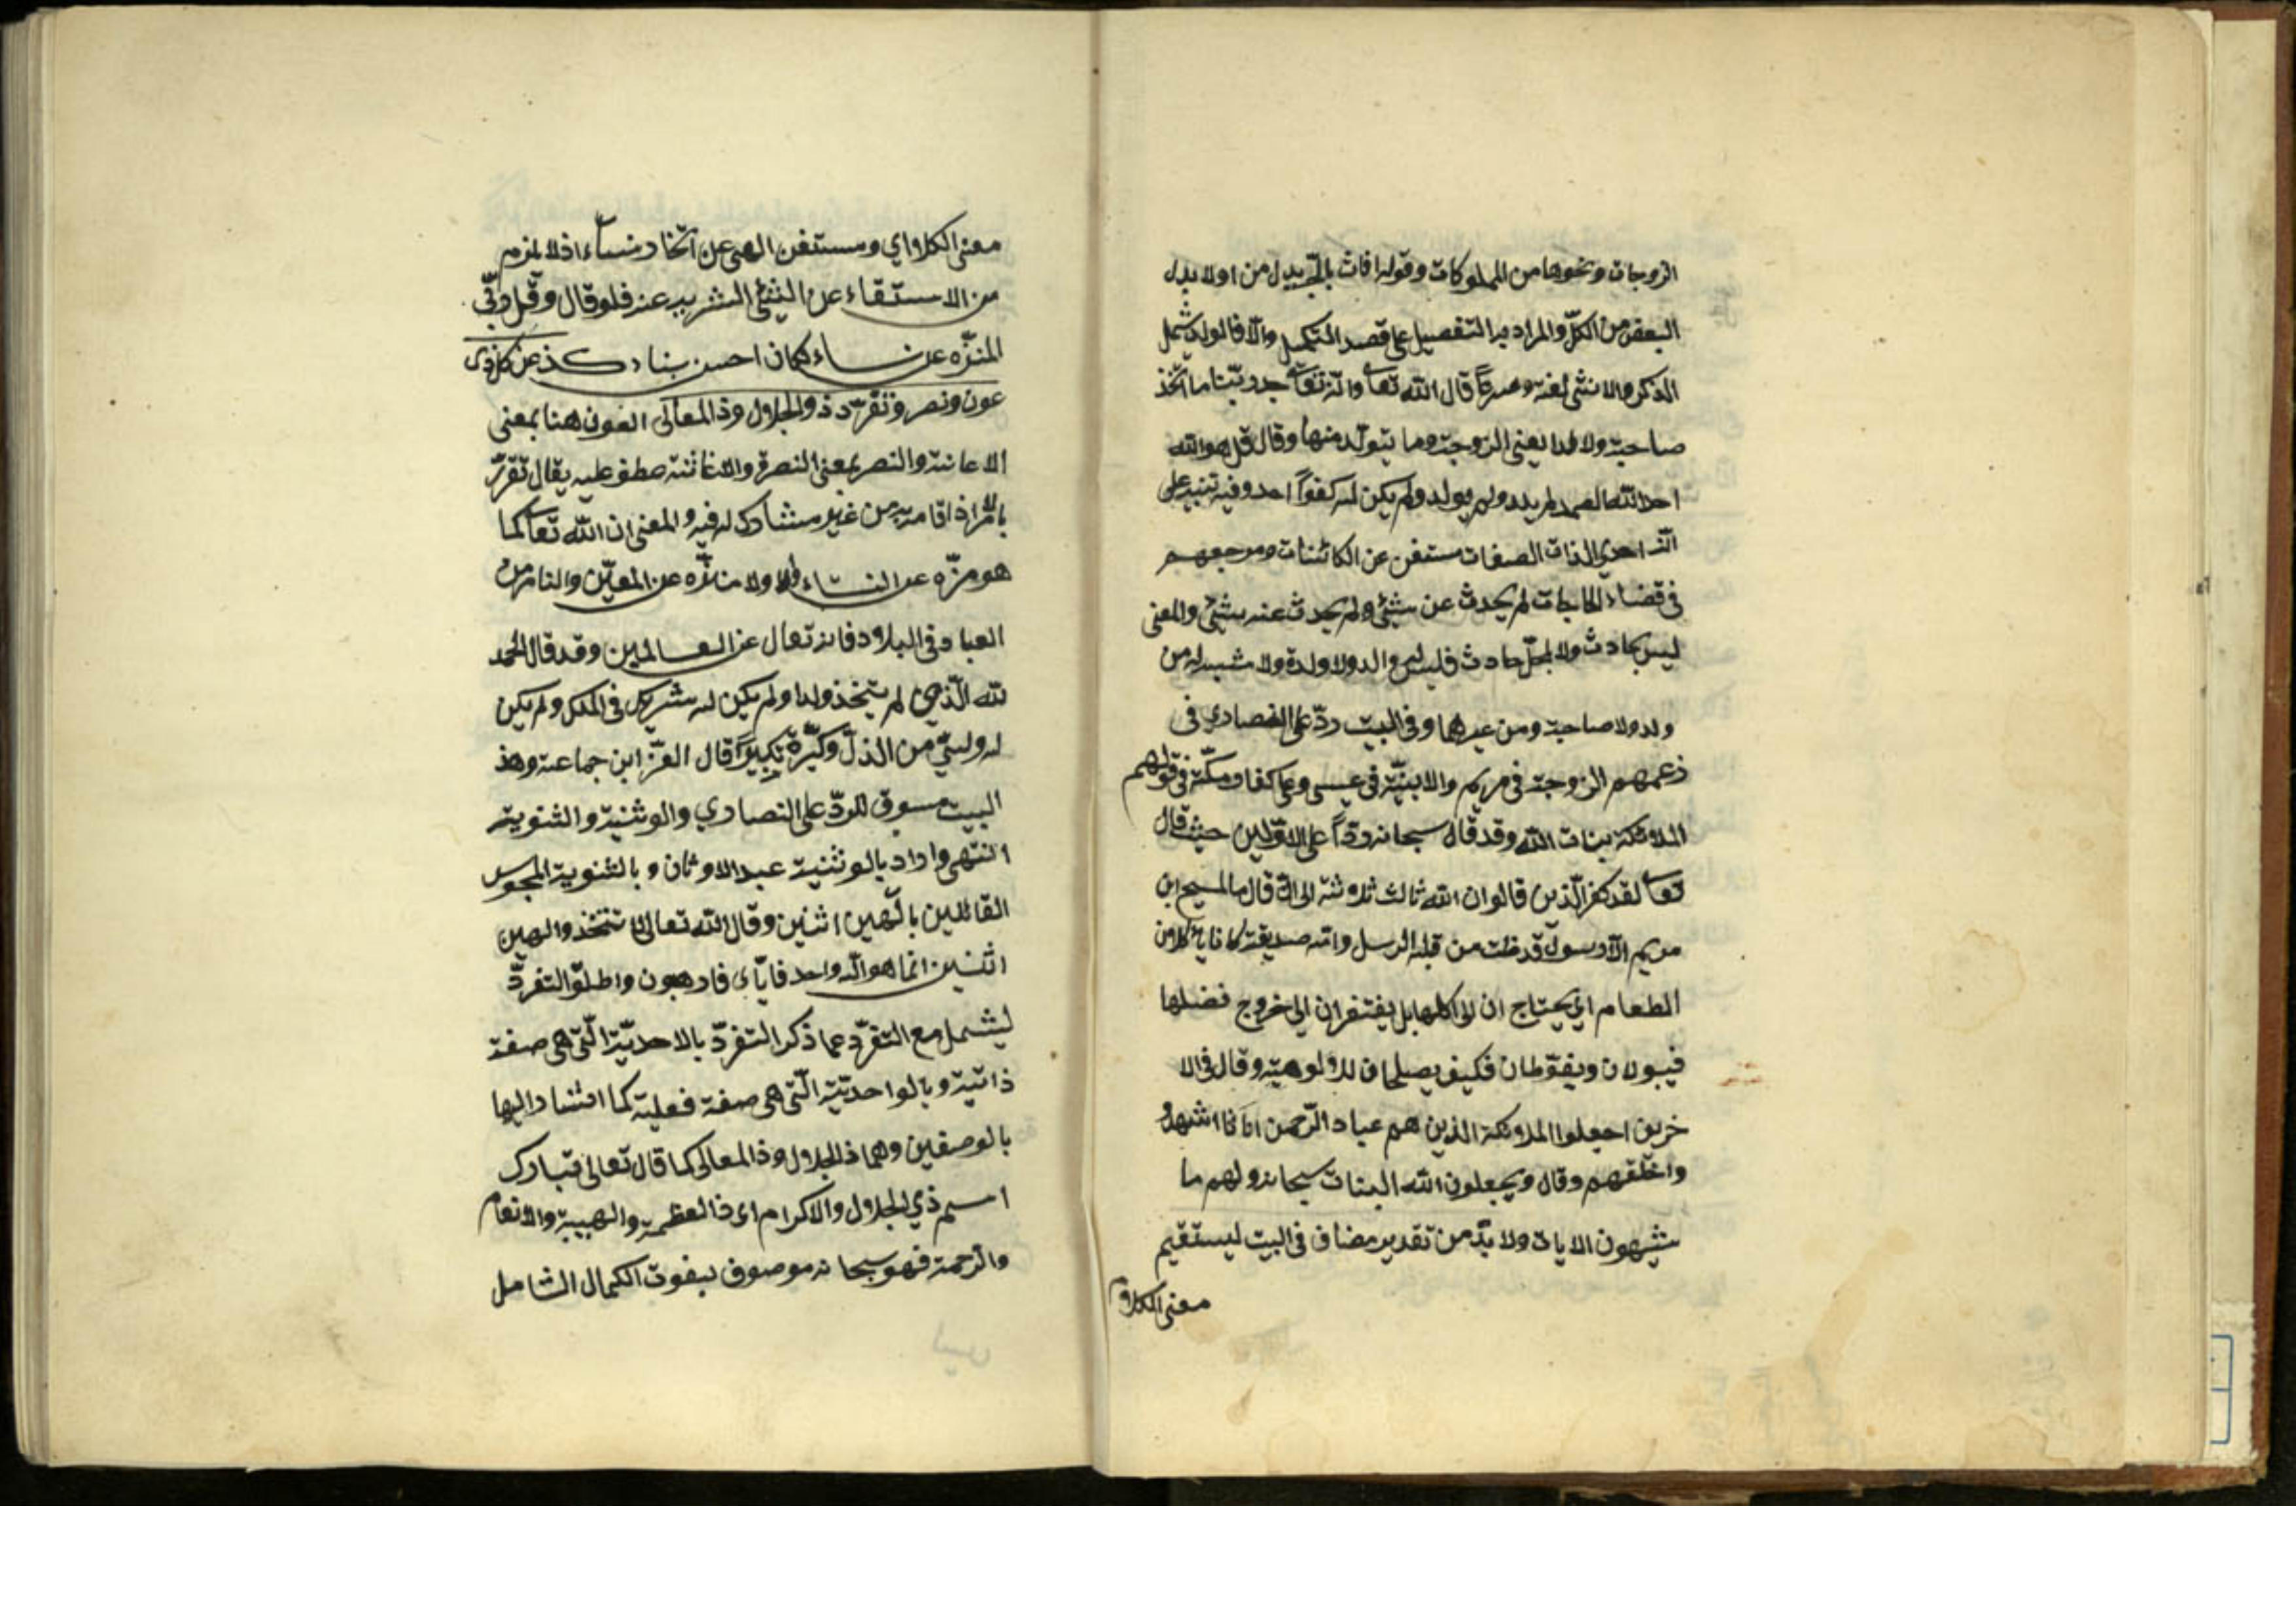 الزوجات ونحوها من المملوكات وقوله اناث بالجر بدل من اولا بدل
البعض من الكلّ والمراد به التفصيل على قصد التكميل والّا فالولد يشمل
الذكر والانثى لغة وعرفاً قال الله تعا وانّه تعا جد ربّنا ما اتّخذ
صاحبة ولا ولدا يعني الزوجة وما يتولّد منها وقال قل هو الله
احد الله الصمد لم يلد ولم يولد ولم يكن له كفواً احد وفيه تنبيه على
انّه احديّ الذات الصفات مستغن عن الكائنات ومرجعهم
في قضاء الحاجات لم يحدث عن شيئ ولم يحدث عنه شيئ والمعنى
ليس بحادث ولا بمحلّ حادث فليس له والد ولا ولدة ولا شبيه له من
ولد ولا صاحبة ومن غيرهما وفي البيت ردّ على النصارى في
زعمهم الزوجة في مريم والابنيّة في عيسى وعلى كفار مكّة في قولهم
الملائكة بنات الله وقد قال سبحانه ردّاً على الاوّلين حيث قال
تعا لقد كفر الّذين قالوا ان الله ثالث ثلاثة الى ان قال ما المسيح ابن
مريم الّا رسول قد خلت من قبله الرسل وامّه صديقة كانا ياكلان
الطعام اي يحتاج ان الى اكلها بل يفتقران الى خروج فضلها
فيبولان ويغوّطان فكيف يصلحان للالوهية وقال في الا
خرين اجعلوا الملائكة الذين هم عباد الرّحمن اناثا اشهدوا
واخلقهم وقال ويجعلون الله البنات سبحانه ولهم ما
يشتهون الايات ولا بدّ من تقدير مضاف في البيت ليستقيم
معنى الكلام
معنى الكلام اي ومستغن الهى عن اتّخاد نساء اذ لا يلزم
من الاستقاء عن الشيئ التنزيه عنه فلو قال وقل ربّي
المنزّه عن نساء لكان احسن بناء كذا عن كل ذي
عون ونصر وتفرّد ذو الجلال وذ المعالى العون هنا بمعنى
الاعانة والنصر بمعنى النصرة والاغاثة عطف عليه يقال تفرّد
بالامر اذا قام به من غير مشارك له فيه والمعنى ان الله تعا كما
هو منزّه عن النساء والاولاد منزّه عن المعيّن والناصر من
العباد في البلاد فانه تعال عن العالمين وقد قال الحمد
لله الّذي لم يتّخذ ولدا ولم يكن له شريك في الملك ولم يكن
له وليّ من الذلّ وكبّرة تكبيراً قال العزّ ابن جماعة وهذ
البيت مسوق للردّ على النصارى والوثنية والثنوية
انتهى واراد بالوثنية عبد الاوثان وبالثنوية المجوس
القائلين بالهين اثنين وقال الله تعالى لا تتّخذوا الهين
اثنين انما هو اله واحد فايّاى فارهبون واطلق التفرّد
ليشمل مع التفرّد عما ذكر التفرّد بالاحديّة الّتي هي صفة
ذاتية وبالواحديّة الّتي هي صفة فعلية كما اشار اليها
بالوصفين وهما ذ الجلال وذ المعالى كما قال تعالى تبارك
اسم ذي الجلال والاكرام اى ذا العظمة والهيبة والانعام
والرّحمة فهو سبحانه موصوف بنعوت الكمال الشامل